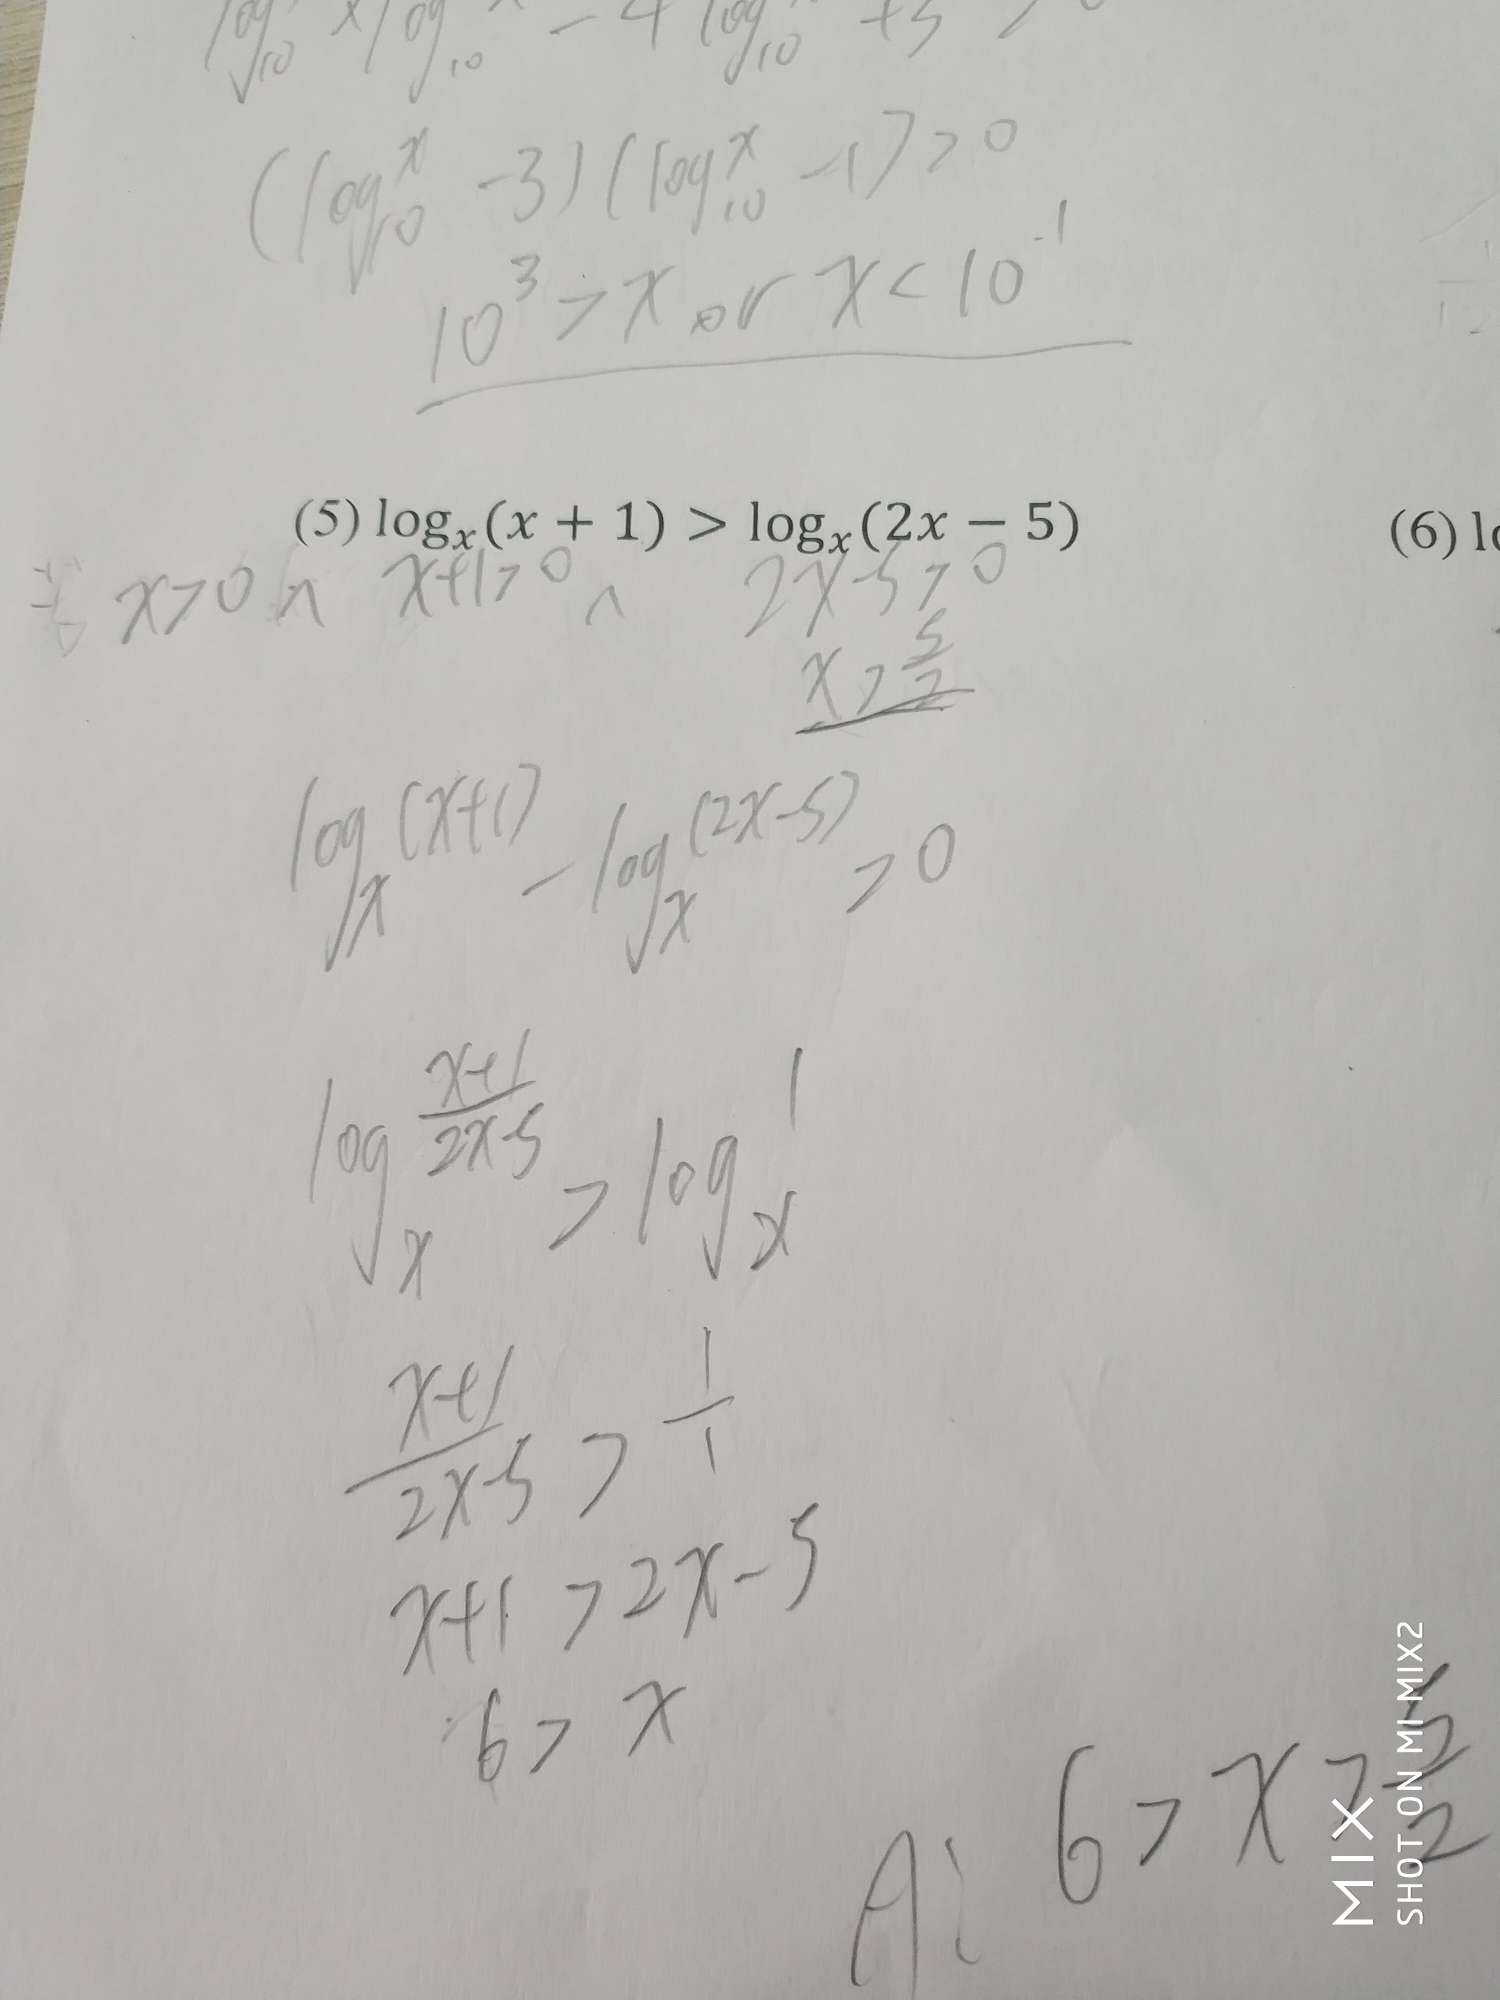 log₁₀ x log₁₀ - 4 log₁₀ + 3 > 0
(log₁₀^x - 3)(log₁₀^x - 1) > 0
10³ > x or x < 10⁻¹
(5) logₓ(x + 1) > logₓ(2x − 5)
(6) lo
x > 0 ∧ x+1 > 0 ∧ 2x-5 > 0
x > 5/2
logₓ^(x+1) - logₓ^(2x-5) > 0
logₓ^(x+1)/(2x-5) > logₓ^1
(x+1)/(2x-5) > 1/1
x+1 > 2x-5
6 > x
A: 6 > x > 5/2
MIX
SHOT ON MI MIX2